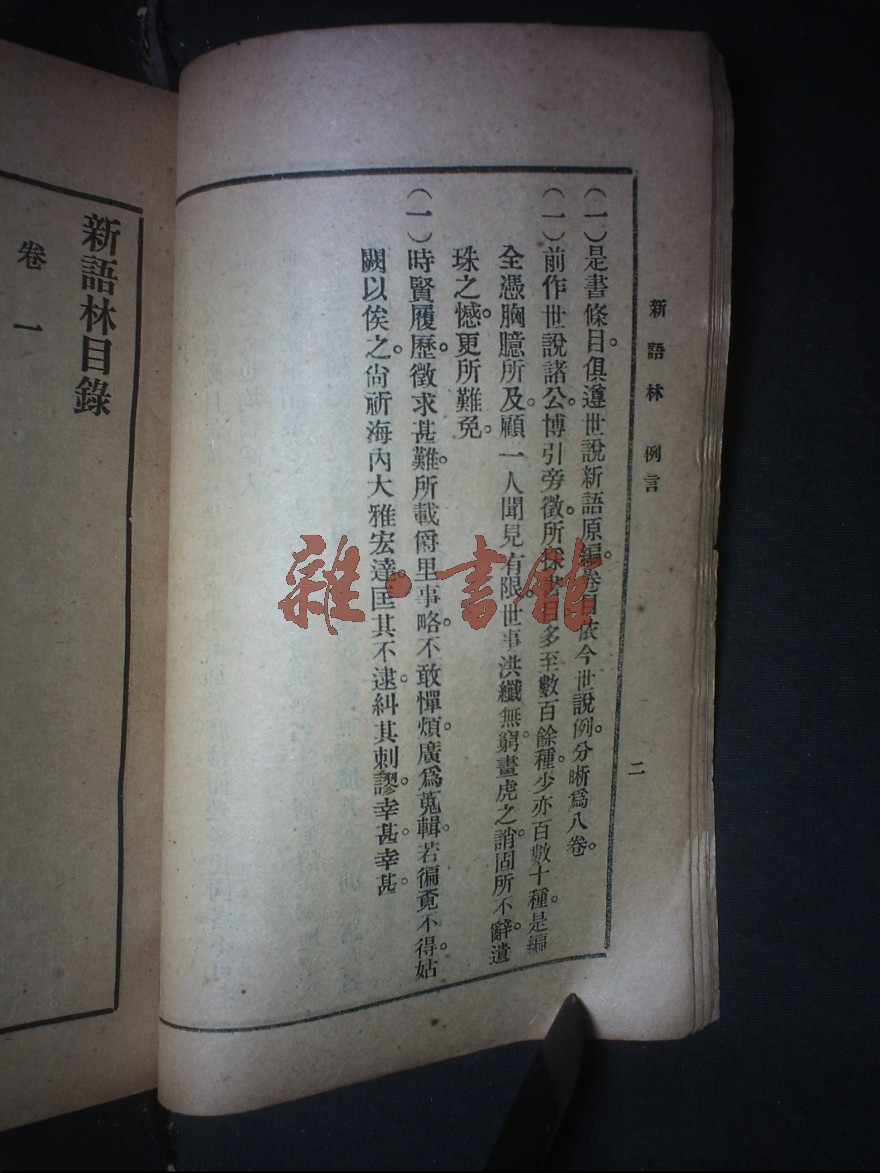 新語林 例言
二
(一)是書條目。俱遵世說新語原編。卷目依今世說例。分晰爲八卷。
(一)前作世說諸公。博引旁徵。所採書目多至數百餘種。少亦百數十種。是編
全憑胸臆所及。顧一人聞見有限。世事洪纖無窮。畫虎之誚。固所不辭。遺
珠之憾。更所難免。
(一)時賢履歷。徵求甚難。所載爵里事略。不敢憚煩。廣爲蒐輯。若徧覓不得。姑
闕以俟之。尙祈海內大雅宏達。匡其不逮。糾其刺謬。幸甚。幸甚。
新語林目錄
卷一
雜·書館